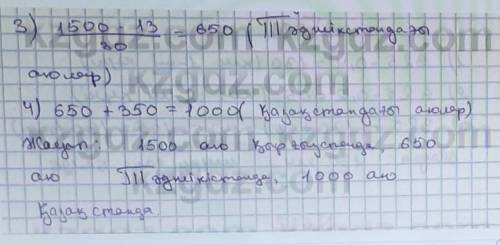 3) 1500 · 13 / 30 = 650 (Тәжікстандағы
аюлар)
4) 650 + 350 = 1000 (Қазақстандағы аюлар)
Жауап: 1500 аю Қырғызстанда, 650
аю Тәжікістанда, 1000 аю
Қазақстанда
kzgdz.com